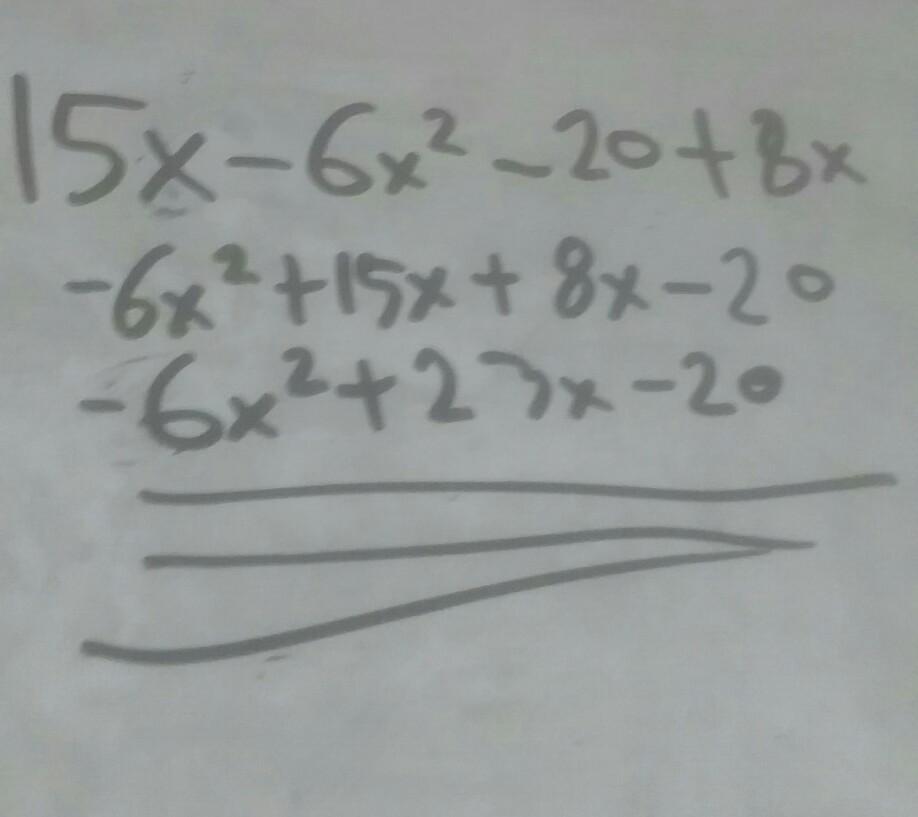 15x-6x²-20+8x
-6x²+15x+8x-20
-6x²+23x-20